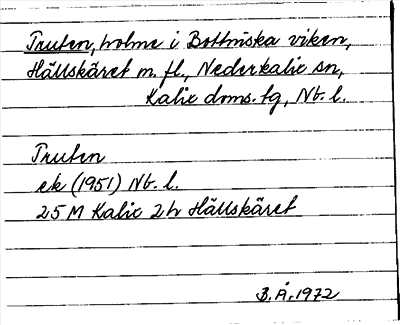 Truten, holme i Bottniska viken,
Hällskäret m. fl., Nederkalix sn,
Kalix doms. tg, Nb. l.
Truten
ek (1951) Nb. l.
25 M Kalix 2h Hällskäret
B. Å. 1972